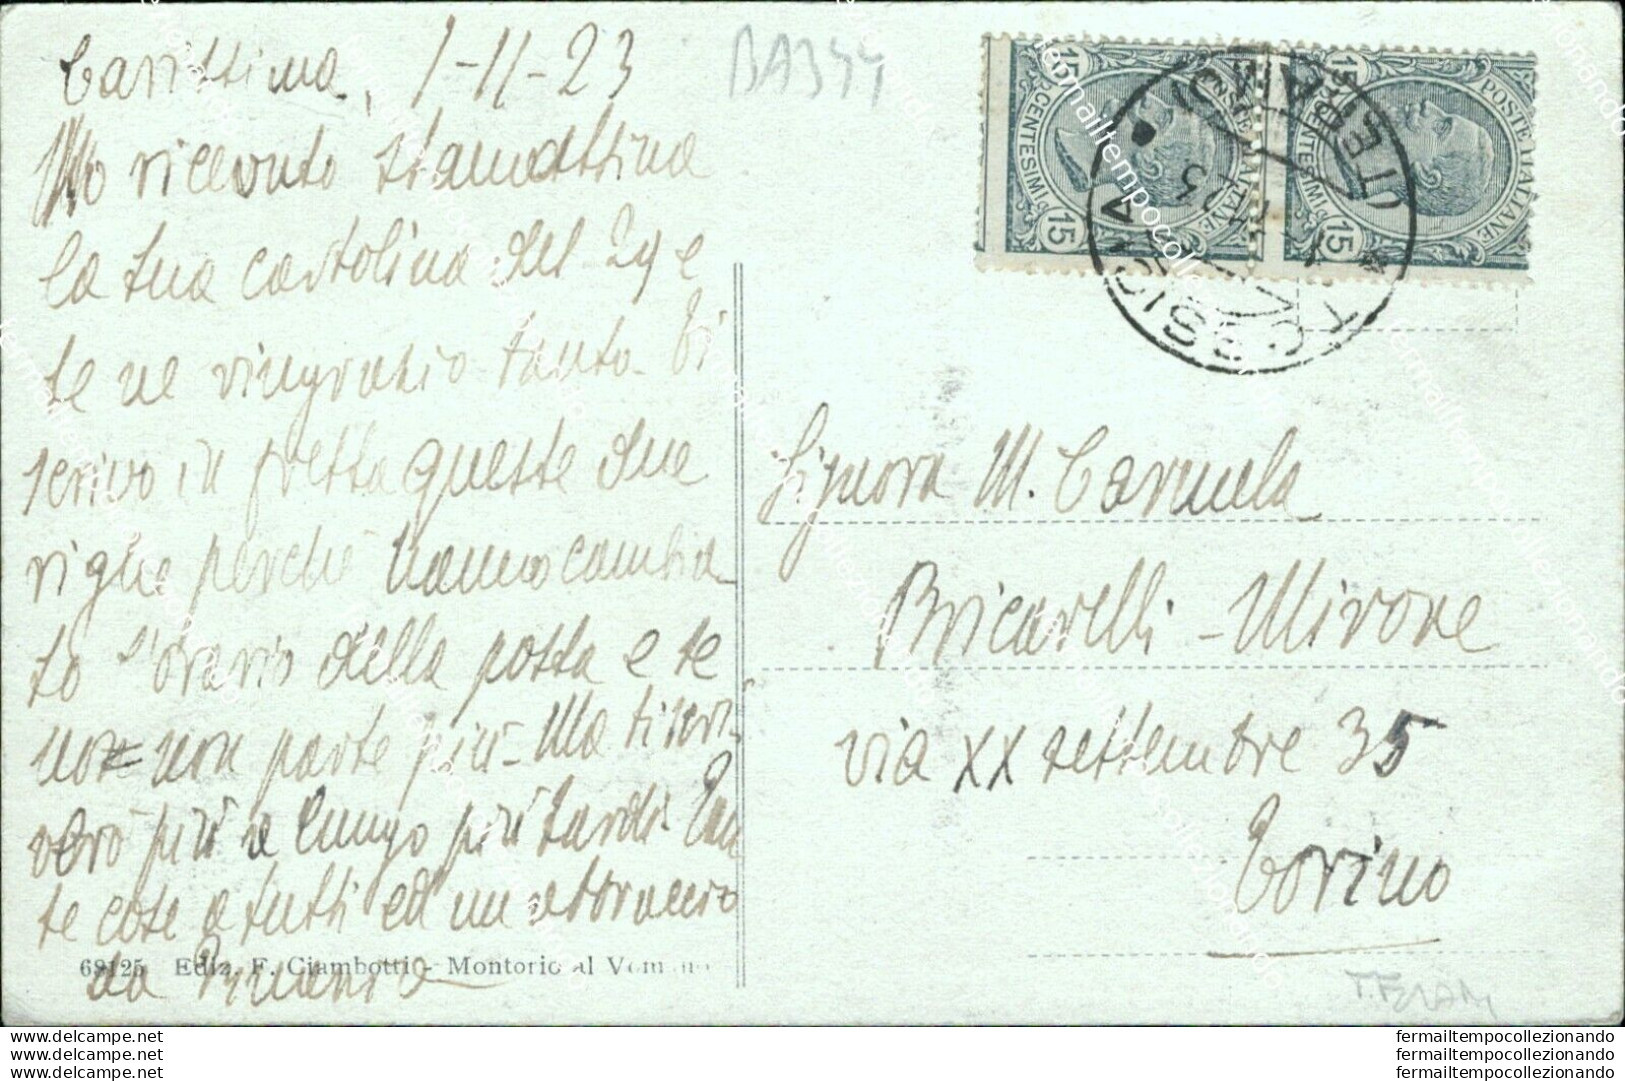 Carissima, 1-11-23
BA344
Ho ricevuto stamattina
la tua cartolina del 29 e
te ne ringrazio tanto. Ti
scrivo in fretta queste due
righe perchè hanno cambia-
to l'orario della posta e se
no non parte più. Ma ti scri-
verò più a lungo più tardi. Tan
te cose a tutti ed un abbraccio
da
68125 Ediz. F. Ciambotti - Montorio al Vomano
POSTE ITALIANE
CENTESIMI
15 15
POSTE ITALIANE
CENTESIMI
15 15
TOSSICIA (TERAMO)
Signora M. Carmela
Bricarelli - Mirone
via XX settembre 35
Torino
T. TERAM
fermailtempocollezionando
fermailtempocollezionando
fermailtempocollezionando
fermailtempocollezionando
fermailtempocollezionando
fermailtempocollezionando